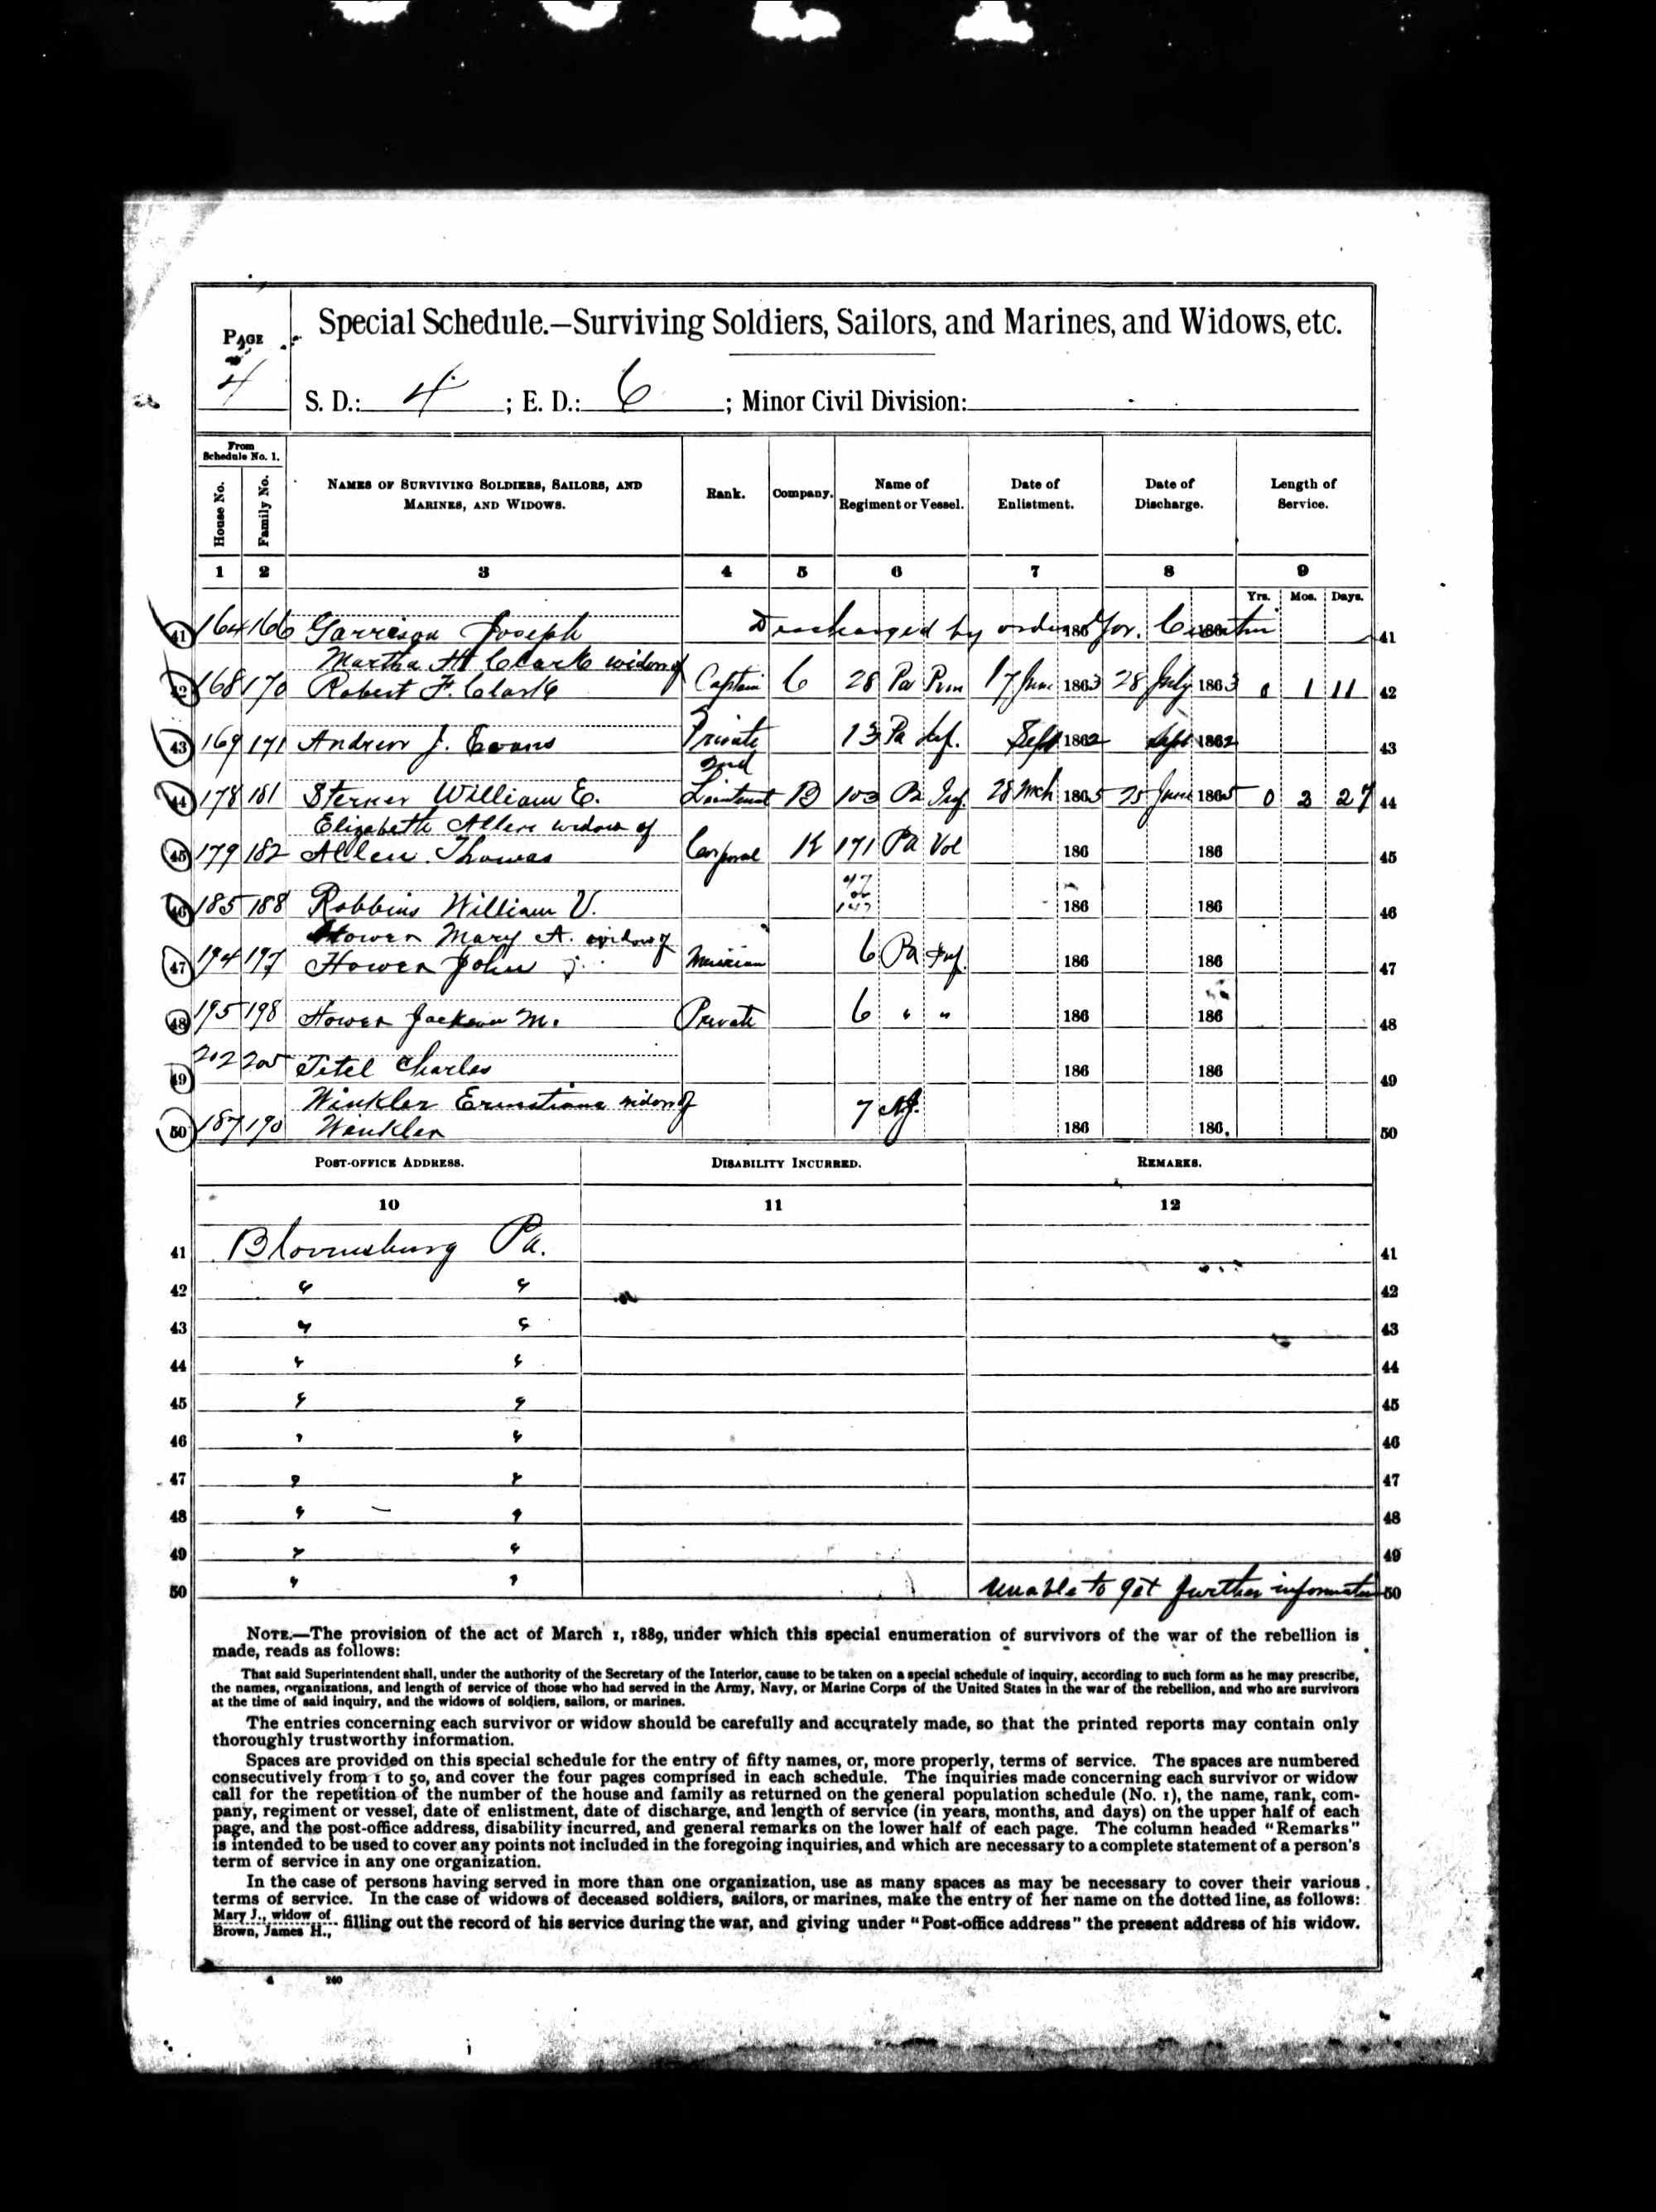 PAGE
4
Special Schedule.—Surviving Soldiers, Sailors, and Marines, and Widows, etc.
S. D.: 4 ; E. D.: 6 ; Minor Civil Division:
From Schedule No. 1.
House No.
Family No.
NAMES OF SURVIVING SOLDIERS, SAILORS, AND MARINES, AND WIDOWS.
Rank.
Company.
Name of Regiment or Vessel.
Date of Enlistment.
Date of Discharge.
Length of Service.
1 2 3 4 5 6 7 8 9
Yrs. Mos. Days.
41 164 166 Garrison Joseph Discharged by order of Gov. Curtin 186 186 41
Martha H Clark widow of
42 168 170 Robert F. Clark Captain C 28 Pa 17 June 1863 28 July 1863 0 1 11 42
43 169 171 Andrew J. Evans Private 13 Pa Inf. Sept 1862 Sept 1862 43
2nd
44 178 181 Sterner William E. Lieutenant B 103 Pa Inf. 28 Mch 1865 25 June 1865 0 2 27 44
Elizabeth Allen widow of
45 179 182 Allen Thomas Corporal K 171 Pa Vol 186 186 45
47
or
46 185 188 Robbins William V. 147 186 186 46
Hower Mary A. widow of
47 194 197 Hower John J. Musician 6 Pa Inf. 186 186 47
48 195 198 Hower Jackson M. Private 6 " " 186 186 48
49 202 205 Titel Charles 186 186 49
Winkler widow of
50 187 190 Winkler 7 NJ. 186 186. 50
POST-OFFICE ADDRESS. DISABILITY INCURRED. REMARKS.
10 11 12
41 Bloomsburg Pa. 41
42 " " 42
43 " " 43
44 " " 44
45 " " 45
46 " " 46
47 " " 47
48 " " 48
49 " " 49
50 " " Unable to get further information 50
NOTE.—The provision of the act of March 1, 1889, under which this special enumeration of survivors of the war of the rebellion is
made, reads as follows:
That said Superintendent shall, under the authority of the Secretary of the Interior, cause to be taken on a special schedule of inquiry, according to such form as he may prescribe,
the names, organizations, and length of service of those who had served in the Army, Navy, or Marine Corps of the United States in the war of the rebellion, and who are survivors
at the time of said inquiry, and the widows of soldiers, sailors, or marines.
The entries concerning each survivor or widow should be carefully and accurately made, so that the printed reports may contain only
thoroughly trustworthy information.
Spaces are provided on this special schedule for the entry of fifty names, or, more properly, terms of service. The spaces are numbered
consecutively from 1 to 50, and cover the four pages comprised in each schedule. The inquiries made concerning each survivor or widow
call for the repetition of the number of the house and family as returned on the general population schedule (No. 1), the name, rank, com-
pany, regiment or vessel, date of enlistment, date of discharge, and length of service (in years, months, and days) on the upper half of each
page, and the post-office address, disability incurred, and general remarks on the lower half of each page. The column headed "Remarks"
is intended to be used to cover any points not included in the foregoing inquiries, and which are necessary to a complete statement of a person's
term of service in any one organization.
In the case of persons having served in more than one organization, use as many spaces as may be necessary to cover their various
terms of service. In the case of widows of deceased soldiers, sailors, or marines, make the entry of her name on the dotted line, as follows:
Mary J., widow of
Brown, James H., filling out the record of his service during the war, and giving under "Post-office address" the present address of his widow.
240